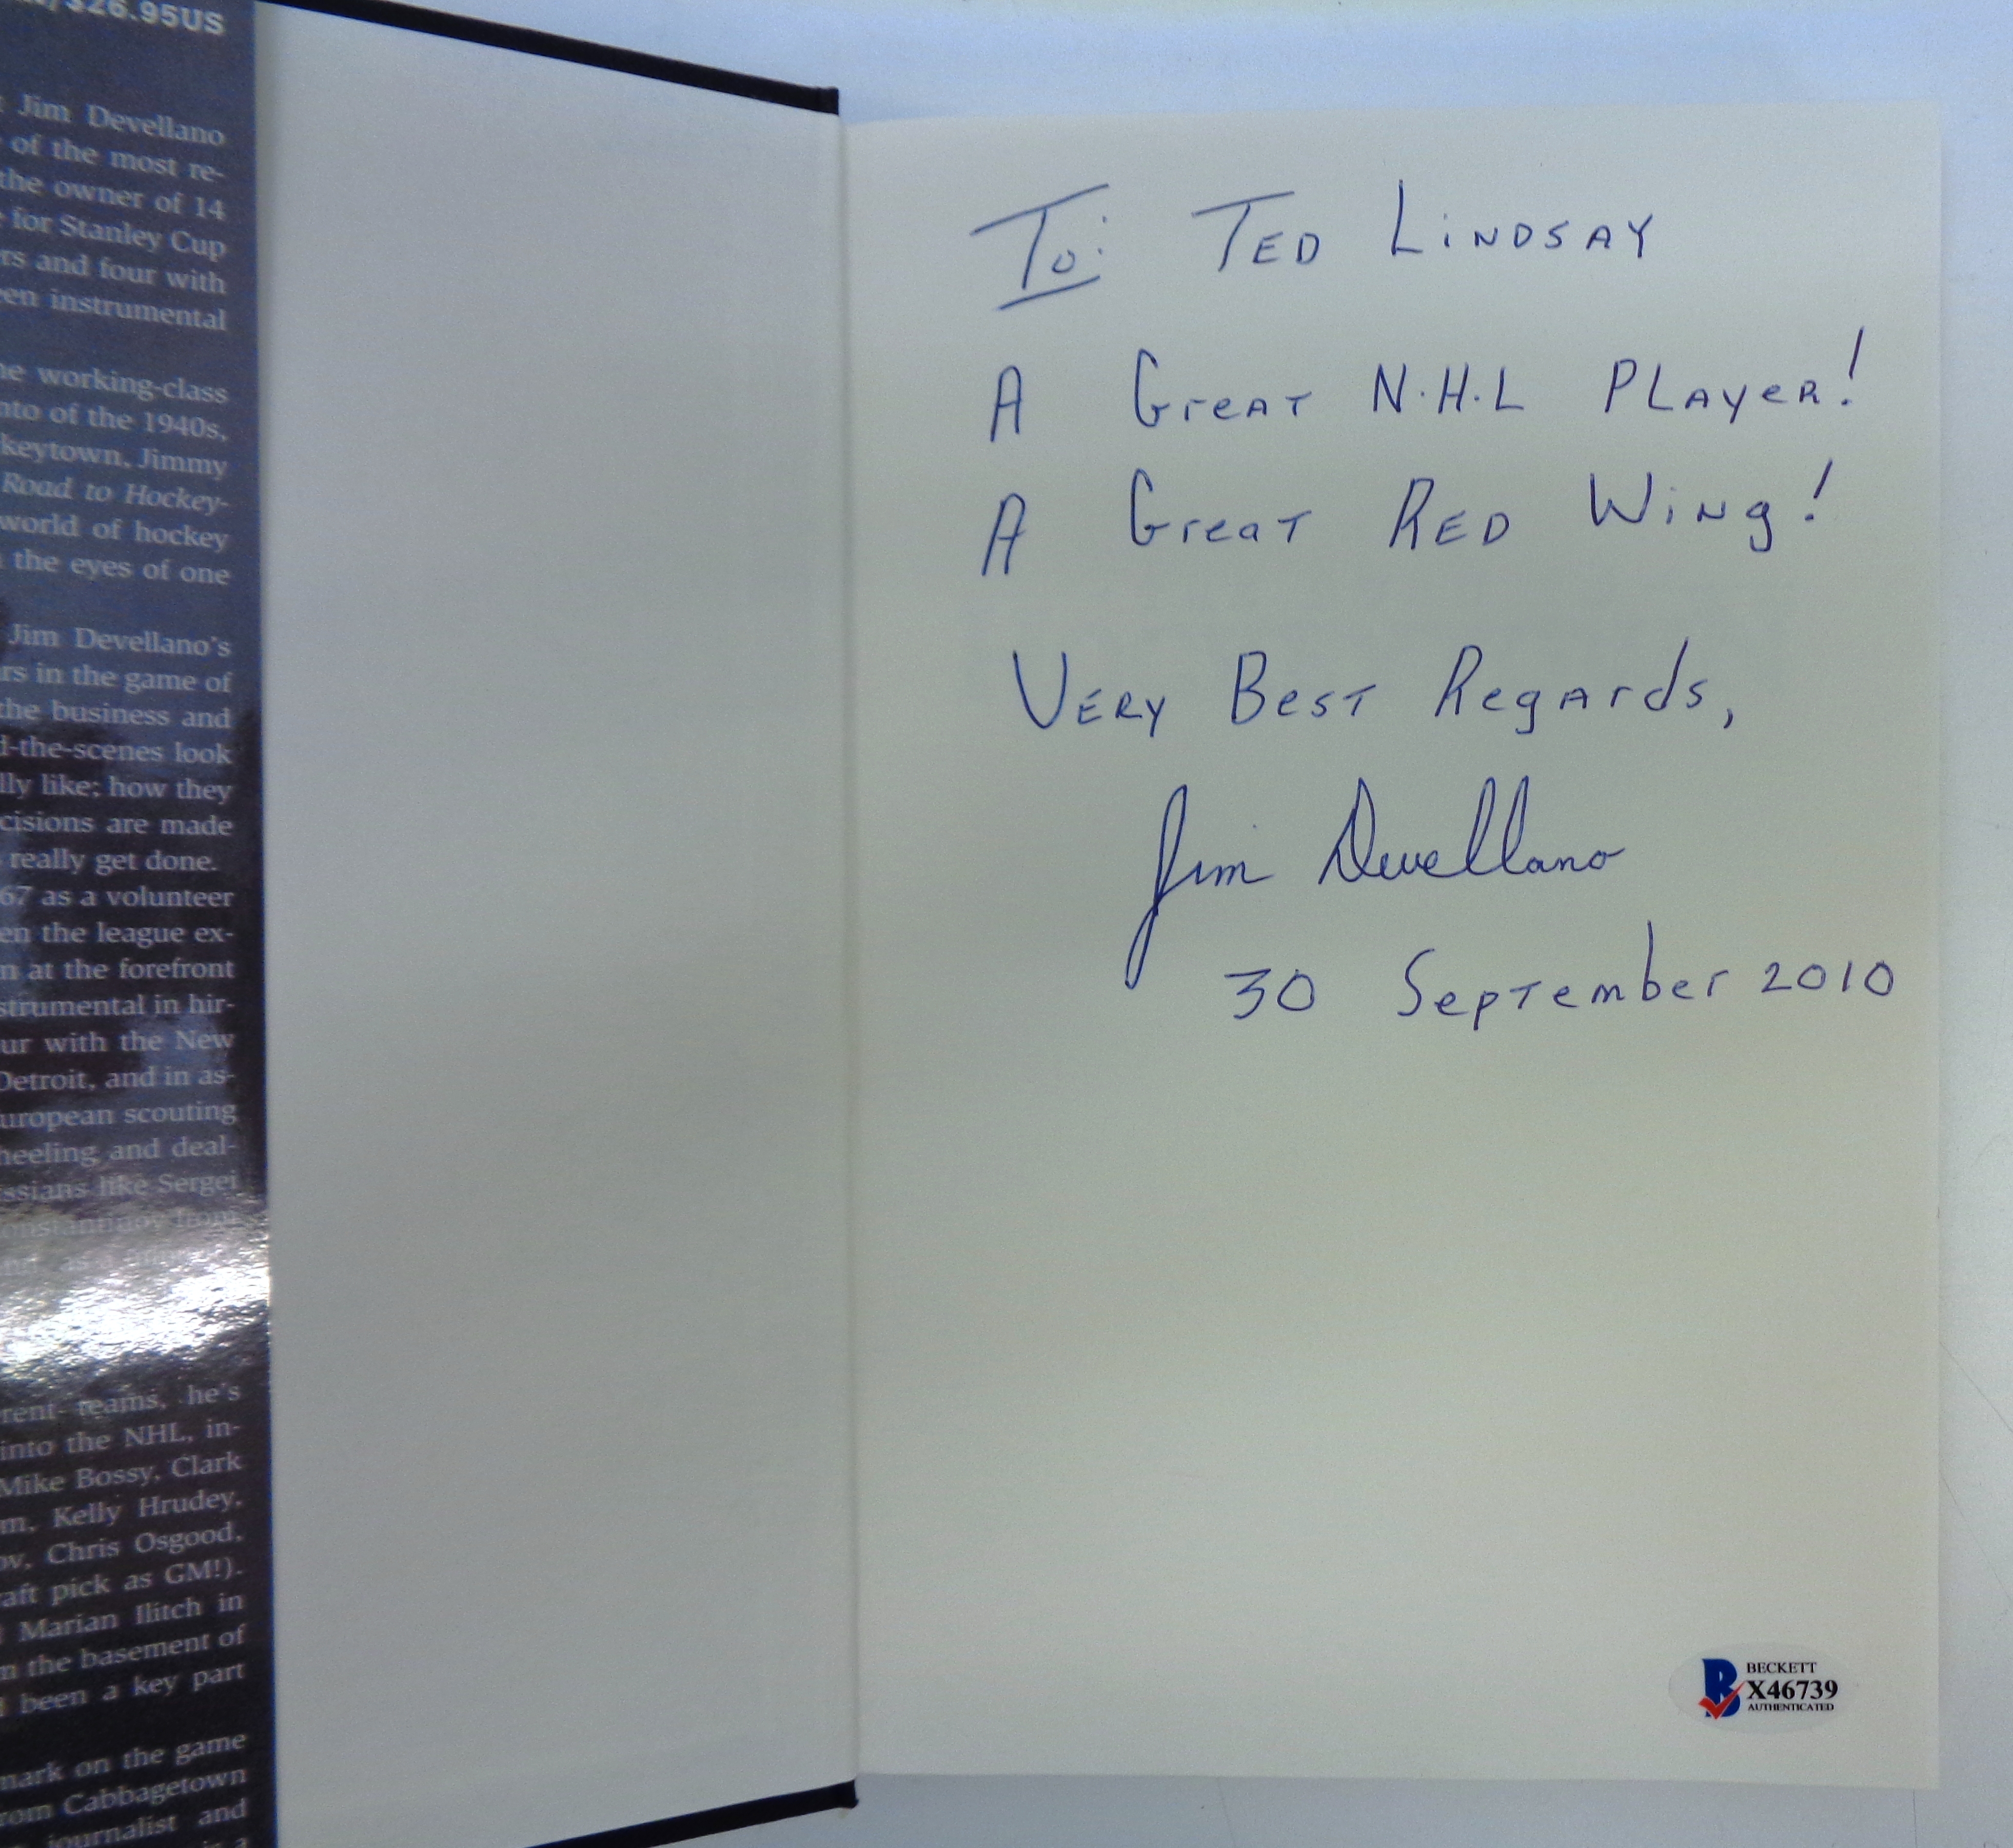 $26.95US
Jim Devellano
of the most re-
the owner of 14
for Stanley Cup
rs and four with
en instrumental
working-class
nto of the 1940s,
keytown, Jimmy
Road to Hockey-
world of hockey
the eyes of one
Jim Devellano's
rs in the game of
the business and
d-the-scenes look
lly like; how they
cisions are made
really get done.
67 as a volunteer
en the league ex-
n at the forefront
strumental in hir-
ur with the New
Detroit, and in as-
uropean scouting
heeling and deal-
ssians like Sergei
from
rent teams, he's
into the NHL, in-
Mike Bossy, Clark
m, Kelly Hrudey,
ov, Chris Osgood,
aft pick as GM!).
Marian Ilitch in
m the basement of
been a key part
mark on the game
rom Cabbagetown
journalist and
To: TED LiNDSAY
A GreAT N.H.L PLAyeR!
A GreaT RED WiNg!
VERY BesT RegArds,
Jim Devellano
30 SepTember 2010
BECKETT
X46739
AUTHENTICATED